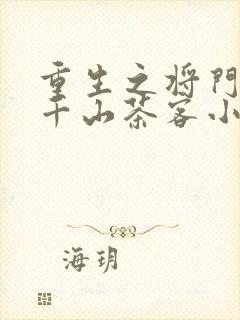 重生之将門
千山茶客小
海玥